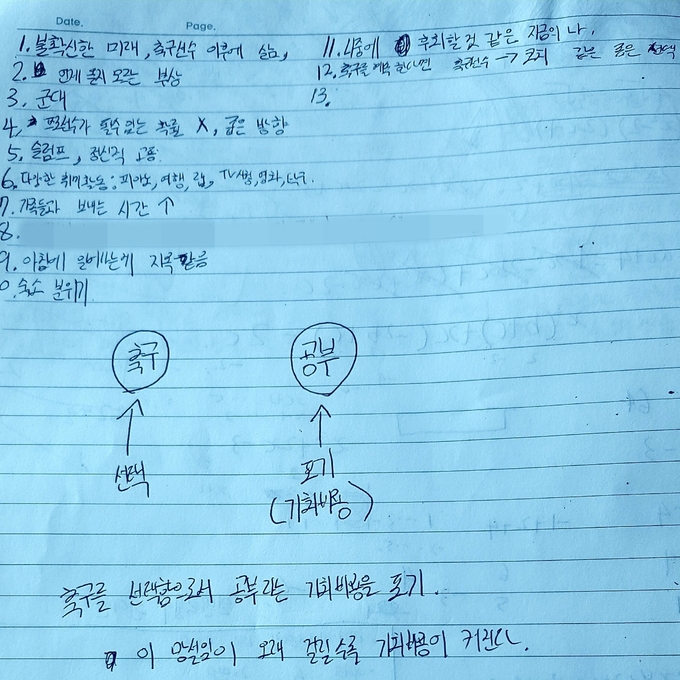 Date.
Page.
1. 불확신한 미래, 축구선수 이후에 삶,
2. 언제 올지 모르는 부상
3. 군대
4. 프로선수가 될수 있는 확률 X, 좁은 방향
5. 슬럼프, 정신적 고통.
6. 다양한 취미활동: 피아노, 여행, 랩, TV시청, 영화, 탁구.
7. 가족들과 보내는 시간 ↑
8.
9. 아침에 일어나는게 지옥 같음
0. 숙소 분위기
11. 나중에 후회할것 같은 지금의 나.
12. 축구를 계속 한다면 축구선수 → 코치 같은 좁은 선택
13.
축구
공부
선택
포기
(기회비용)
축구를 선택함으로서 공부라는 기회비용을 포기.
이 망설임이 오래 걸릴수록 기회비용이 커진다.